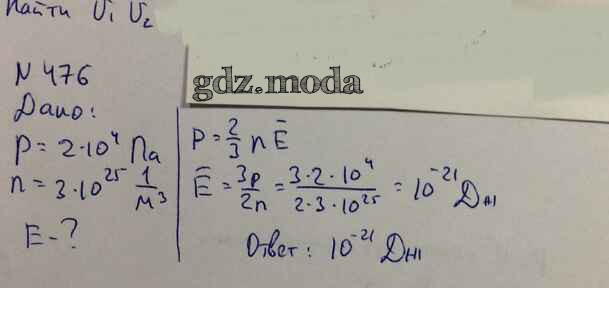 Найти U₁ U₂
N 476
gdz.moda
Дано:
P = 2·10⁴ Па
n = 3·10²⁵ 1/м³
E - ?
P = 2/3 n Ē
Ē = 3p/2n = 3·2·10⁴/2·3·10²⁵ = 10⁻²¹ Дж
Ответ: 10⁻²¹ Дж